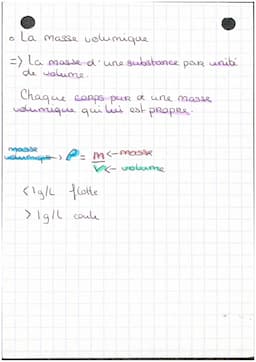 ◦ La masse volumique
=> La masse d'une substance par unité
de volume.
Chaque corps pur a une masse
volumique qui lui est propre.
masse
volumique -> ρ = m <- masse
V <- volume
< 1g/L flotte
> 1g/L coule